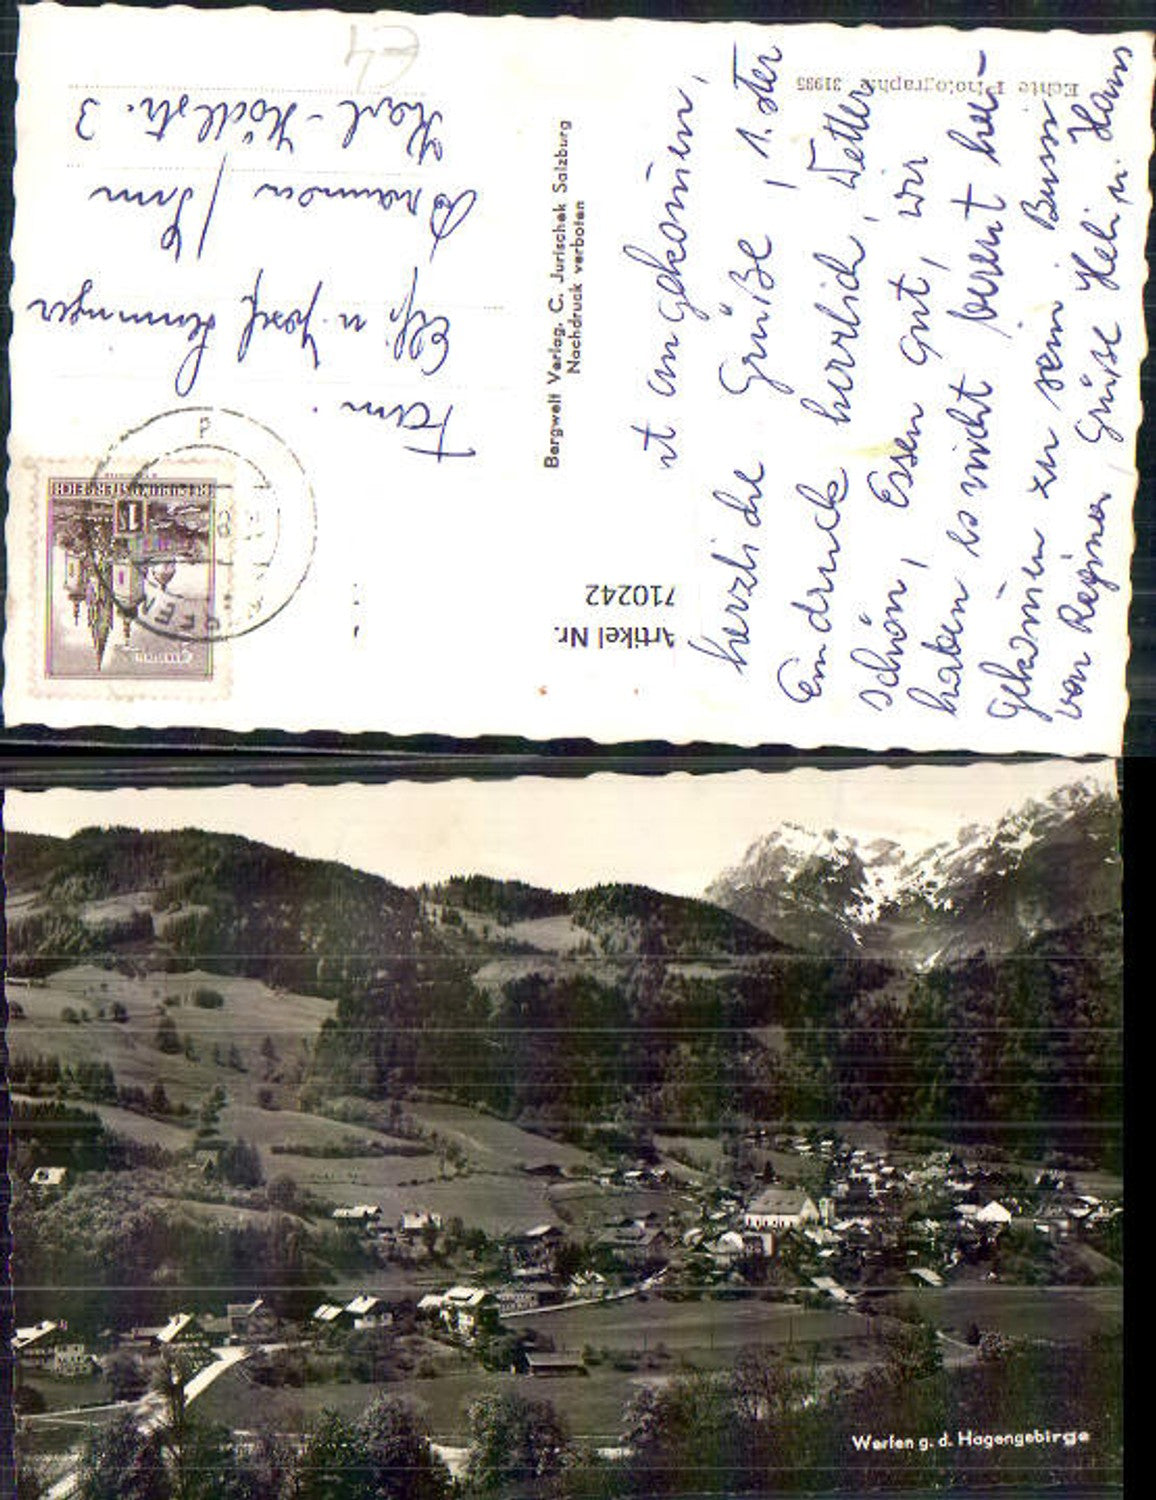 Echte Photographie 31995
Bergwelt Verlag, C. Jurischek Salzburg
Nachdruck verboten
Artikel Nr.
710242
REPUBLIK ÖSTERREICH
Fam.
Elfi u. Josef
Braunau / Inn
3
ut angekommen,
herzliche Grüße, 1. ster
Eindruck herrlich, Wetter
schön, Essen gut, wir
haben es nicht bereut her-
gekommen zu sein Bussi
von Regina, Grüße Heli u. Hans
Werfen g. d. Hagengebirge